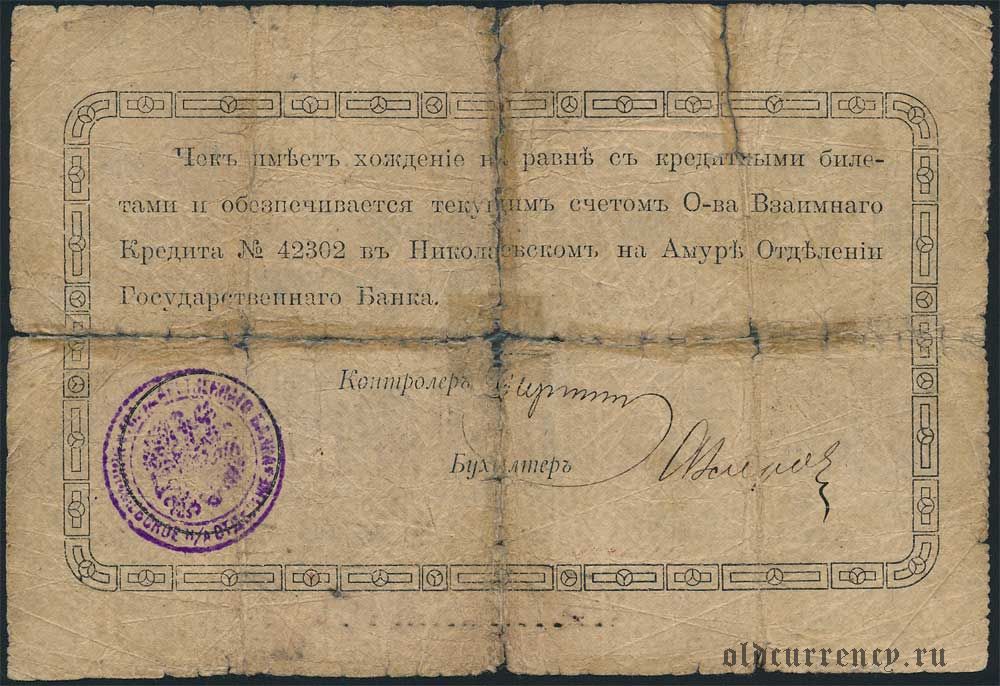 Чекъ имѣетъ хожденіе на равнѣ съ кредитными биле-
тами и обезпечивается текущимъ счетомъ О-ва Взаимнаго
Кредита № 42302 въ Николаевскомъ на Амурѣ Отдѣленіи
Государственнаго Банка.
Контролеръ
Бухгалтеръ
ГОСУДАРСТВЕННАГО БАНКА
НИКОЛАЕВСКОЕ Н/А ОТДѢЛЕНІЕ
oldcurrency.ru